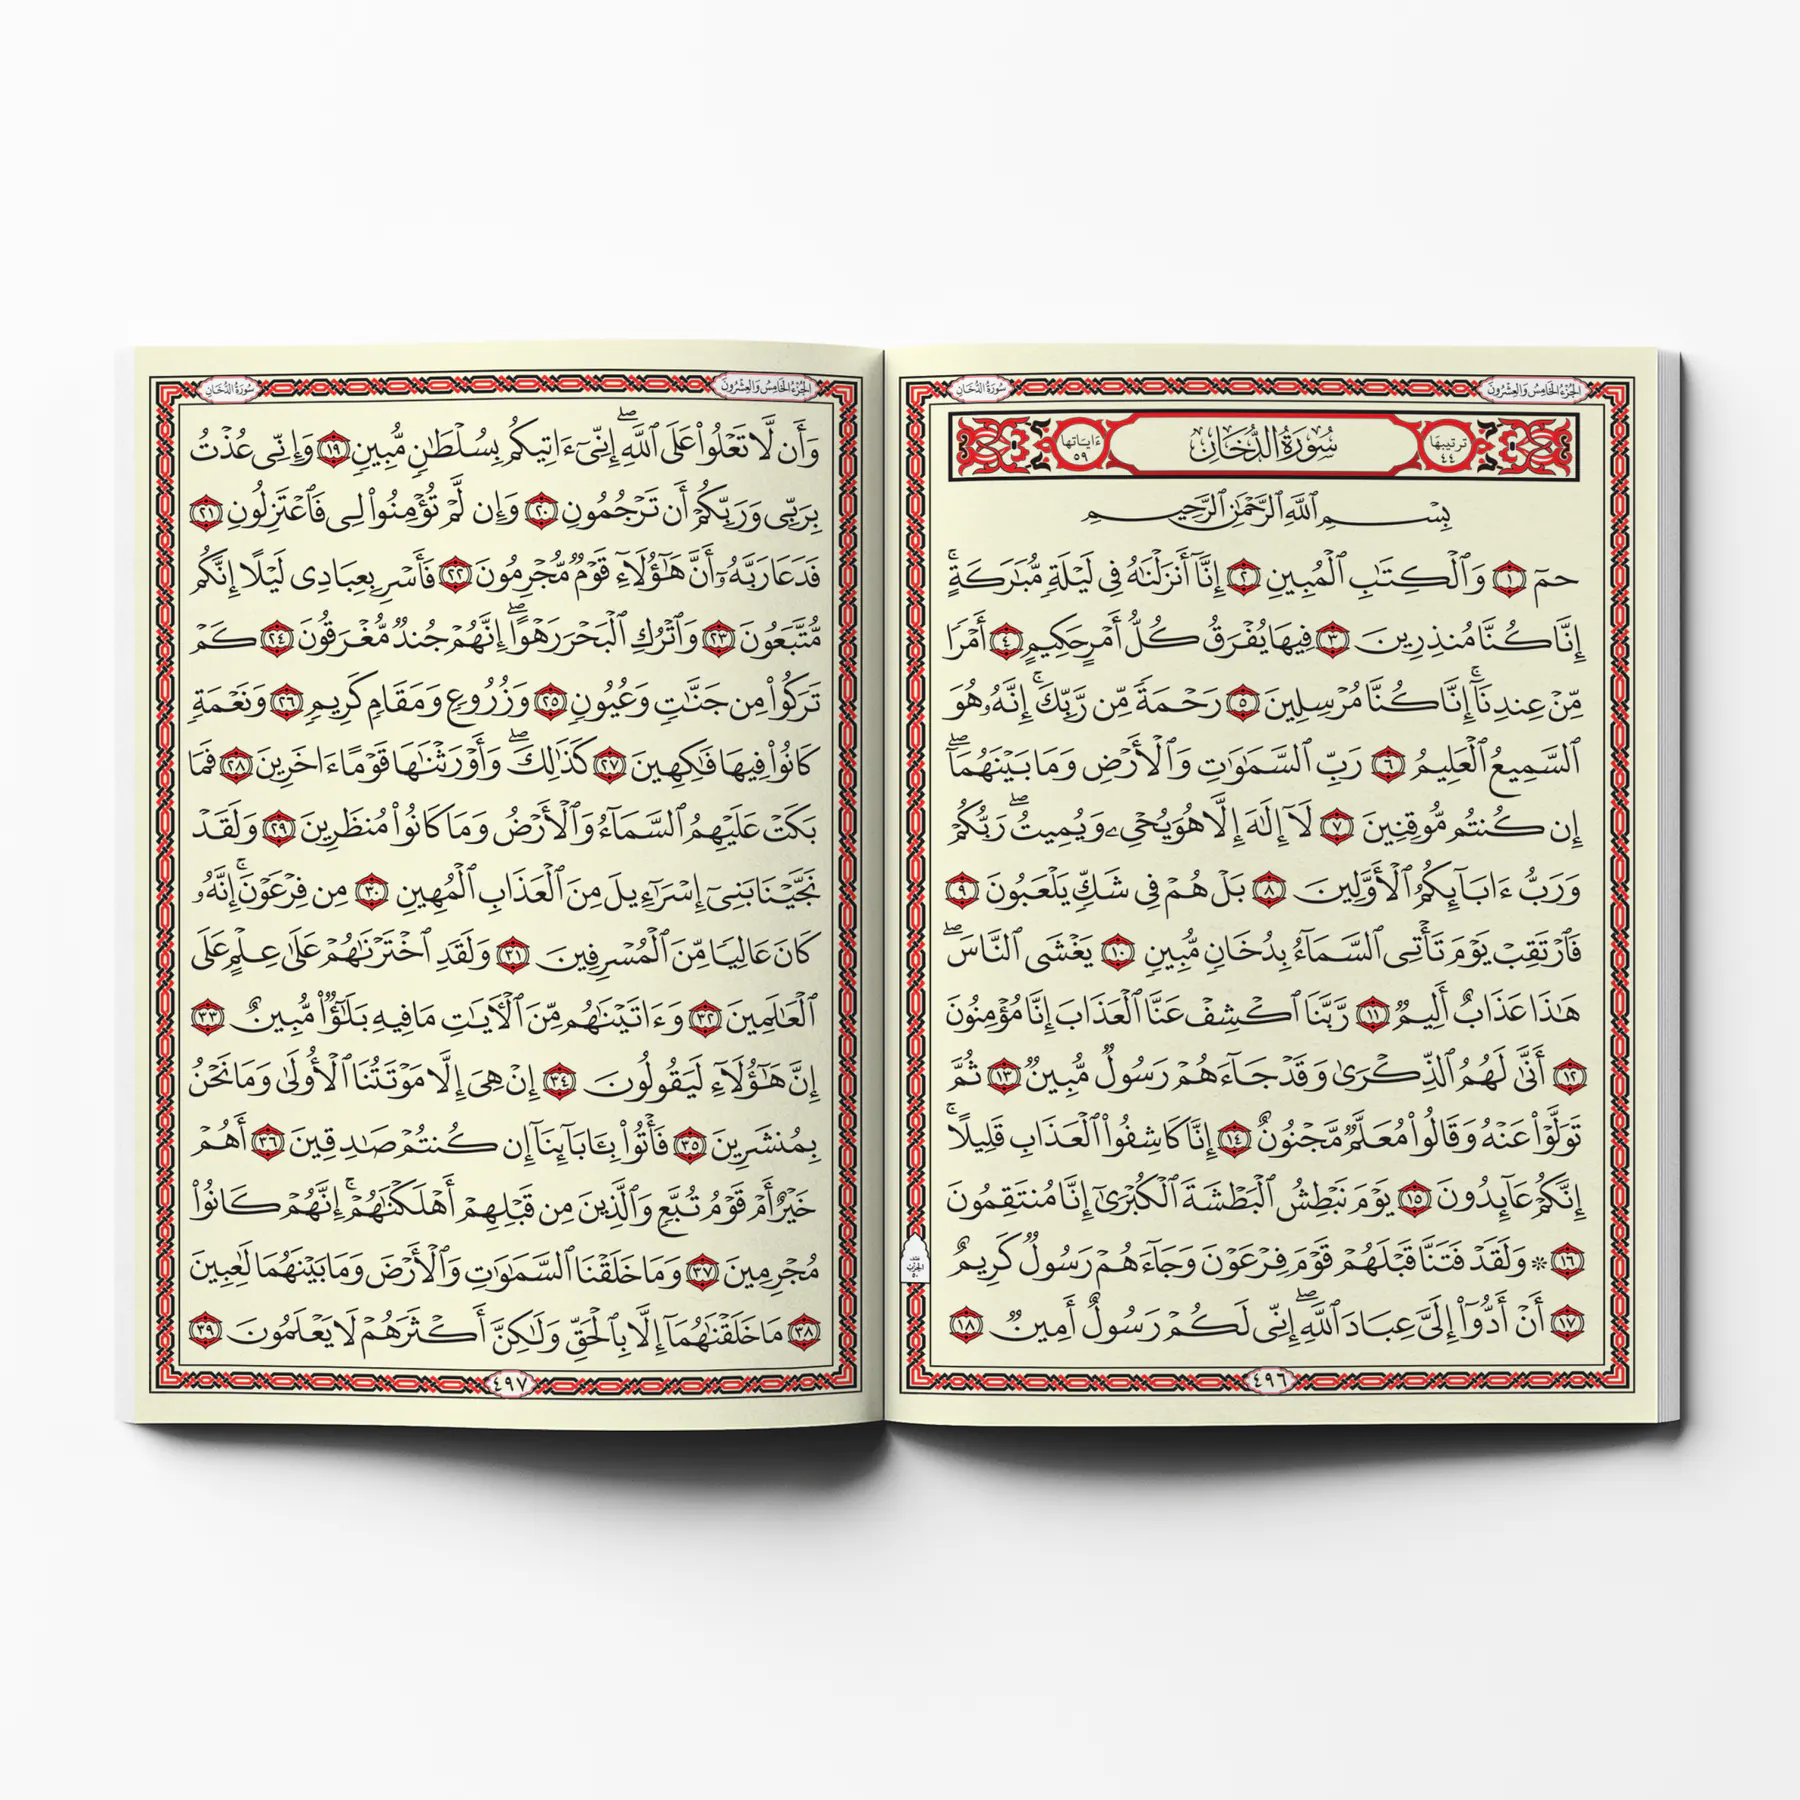 الجزء الخامس والعشرون
سورة الدخان
ترتيبها ٤٤
سُورَةُ الدُّخَانِ
ءاياتها ٥٩
بِسْمِ ٱللَّهِ ٱلرَّحْمَٰنِ ٱلرَّحِيمِ
حمٓ ١ وَٱلْكِتَٰبِ ٱلْمُبِينِ ٢ إِنَّآ أَنزَلْنَٰهُ فِى لَيْلَةٍ مُّبَٰرَكَةٍۚ
إِنَّا كُنَّا مُنذِرِينَ ٣ فِيهَا يُفْرَقُ كُلُّ أَمْرٍ حَكِيمٍ ٤ أَمْرًا
مِّنْ عِندِنَآۚ إِنَّا كُنَّا مُرْسِلِينَ ٥ رَحْمَةً مِّن رَّبِّكَۚ إِنَّهُۥ هُوَ
ٱلسَّمِيعُ ٱلْعَلِيمُ ٦ رَبِّ ٱلسَّمَٰوَٰتِ وَٱلْأَرْضِ وَمَا بَيْنَهُمَآۖ
إِن كُنتُم مُّوقِنِينَ ٧ لَآ إِلَٰهَ إِلَّا هُوَ يُحْىِۦ وَيُمِيتُۖ رَبُّكُمْ
وَرَبُّ ءَابَآئِكُمُ ٱلْأَوَّلِينَ ٨ بَلْ هُمْ فِى شَكٍّ يَلْعَبُونَ ٩
فَٱرْتَقِبْ يَوْمَ تَأْتِى ٱلسَّمَآءُ بِدُخَانٍ مُّبِينٍ ١٠ يَغْشَى ٱلنَّاسَۖ
هَٰذَا عَذَابٌ أَلِيمٌ ١١ رَّبَّنَا ٱكْشِفْ عَنَّا ٱلْعَذَابَ إِنَّا مُؤْمِنُونَ
١٢ أَنَّىٰ لَهُمُ ٱلذِّكْرَىٰ وَقَدْ جَآءَهُمْ رَسُولٌ مُّبِينٌ ١٣ ثُمَّ
تَوَلَّوْا۟ عَنْهُ وَقَالُوا۟ مُعَلَّمٌ مَّجْنُونٌ ١٤ إِنَّا كَاشِفُوا۟ ٱلْعَذَابِ قَلِيلًاۚ
إِنَّكُمْ عَآئِدُونَ ١٥ يَوْمَ نَبْطِشُ ٱلْبَطْشَةَ ٱلْكُبْرَىٰٓ إِنَّا مُنتَقِمُونَ
١٦ ۞ وَلَقَدْ فَتَنَّا قَبْلَهُمْ قَوْمَ فِرْعَوْنَ وَجَآءَهُمْ رَسُولٌ كَرِيمٌ
١٧ أَنْ أَدُّوٓا۟ إِلَىَّ عِبَادَ ٱللَّهِۖ إِنِّى لَكُمْ رَسُولٌ أَمِينٌ ١٨
الحزب
٥٠
٤٩٦
الجزء الخامس والعشرون
سورة الدخان
وَأَن لَّا تَعْلُوا۟ عَلَى ٱللَّهِۖ إِنِّىٓ ءَاتِيكُم بِسُلْطَٰنٍ مُّبِينٍ ١٩ وَإِنِّى عُذْتُ
بِرَبِّى وَرَبِّكُمْ أَن تَرْجُمُونِ ٢٠ وَإِن لَّمْ تُؤْمِنُوا۟ لِى فَٱعْتَزِلُونِ ٢١
فَدَعَا رَبَّهُۥٓ أَنَّ هَٰٓؤُلَآءِ قَوْمٌ مُّجْرِمُونَ ٢٢ فَأَسْرِ بِعِبَادِى لَيْلًا إِنَّكُم
مُّتَّبَعُونَ ٢٣ وَٱتْرُكِ ٱلْبَحْرَ رَهْوًاۖ إِنَّهُمْ جُندٌ مُّغْرَقُونَ ٢٤ كَمْ
تَرَكُوا۟ مِن جَنَّٰتٍ وَعُيُونٍ ٢٥ وَزُرُوعٍ وَمَقَامٍ كَرِيمٍ ٢٦ وَنَعْمَةٍ
كَانُوا۟ فِيهَا فَٰكِهِينَ ٢٧ كَذَٰلِكَۖ وَأَوْرَثْنَٰهَا قَوْمًا ءَاخَرِينَ ٢٨ فَمَا
بَكَتْ عَلَيْهِمُ ٱلسَّمَآءُ وَٱلْأَرْضُ وَمَا كَانُوا۟ مُنظَرِينَ ٢٩ وَلَقَدْ
نَجَّيْنَا بَنِىٓ إِسْرَٰٓءِيلَ مِنَ ٱلْعَذَابِ ٱلْمُهِينِ ٣٠ مِن فِرْعَوْنَۚ إِنَّهُۥ
كَانَ عَالِيًا مِّنَ ٱلْمُسْرِفِينَ ٣١ وَلَقَدِ ٱخْتَرْنَٰهُمْ عَلَىٰ عِلْمٍ عَلَى
ٱلْعَٰلَمِينَ ٣٢ وَءَاتَيْنَٰهُم مِّنَ ٱلْءَايَٰتِ مَا فِيهِ بَلَٰٓؤٌا۟ مُّبِينٌ ٣٣
إِنَّ هَٰٓؤُلَآءِ لَيَقُولُونَ ٣٤ إِنْ هِىَ إِلَّا مَوْتَتُنَا ٱلْأُولَىٰ وَمَا نَحْنُ
بِمُنشَرِينَ ٣٥ فَأْتُوا۟ بِـَٔابَآئِنَآ إِن كُنتُمْ صَٰدِقِينَ ٣٦ أَهُمْ
خَيْرٌ أَمْ قَوْمُ تُبَّعٍ وَٱلَّذِينَ مِن قَبْلِهِمْ أَهْلَكْنَٰهُمْۚ إِنَّهُمْ كَانُوا۟
مُجْرِمِينَ ٣٧ وَمَا خَلَقْنَا ٱلسَّمَٰوَٰتِ وَٱلْأَرْضَ وَمَا بَيْنَهُمَا لَٰعِبِينَ
٣٨ مَا خَلَقْنَٰهُمَآ إِلَّا بِٱلْحَقِّ وَلَٰكِنَّ أَكْثَرَهُمْ لَا يَعْلَمُونَ ٣٩
٤٩٧